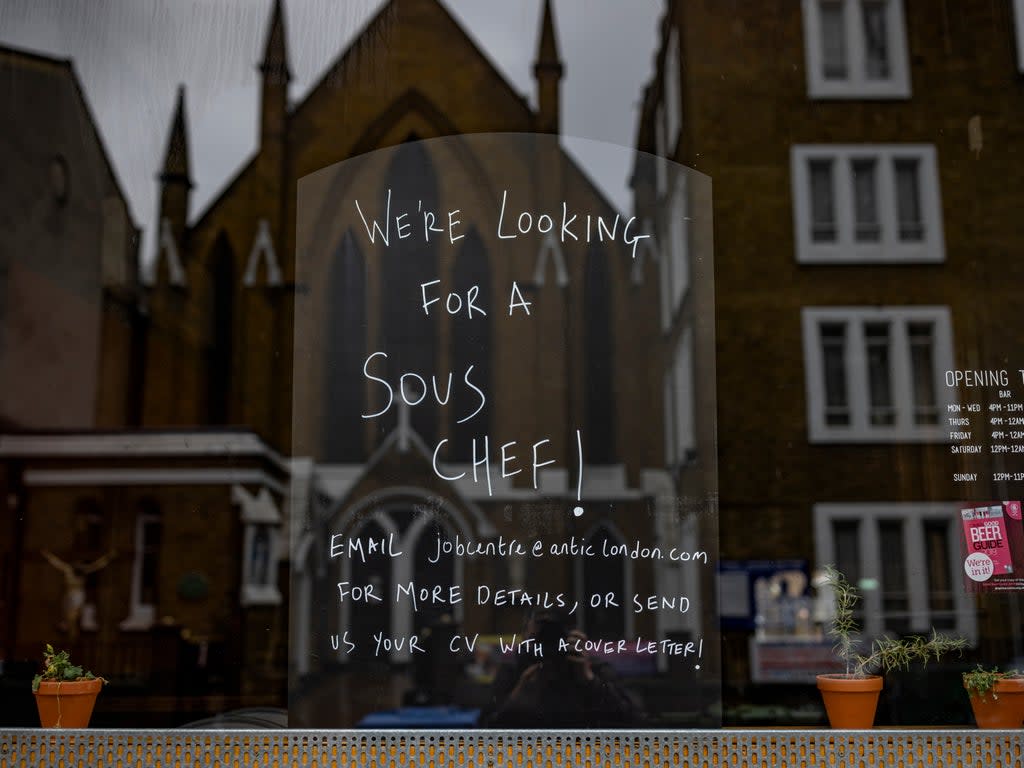 WE'RE LOOKING
FOR A
SOUS
CHEF!
EMAIL jobcentre@anticlondon.com
FOR MORE DETAILS, OR SEND
US YOUR CV WITH A COVER LETTER!
OPENING
BAR
MON - WED 4PM - 11PM
THURS 4PM - 12AM
FRIDAY 4PM - 12AM
SATURDAY 12PM - 12A
SUNDAY 12PM - 11P
GOOD
BEER
GUIDE
We're
in it!